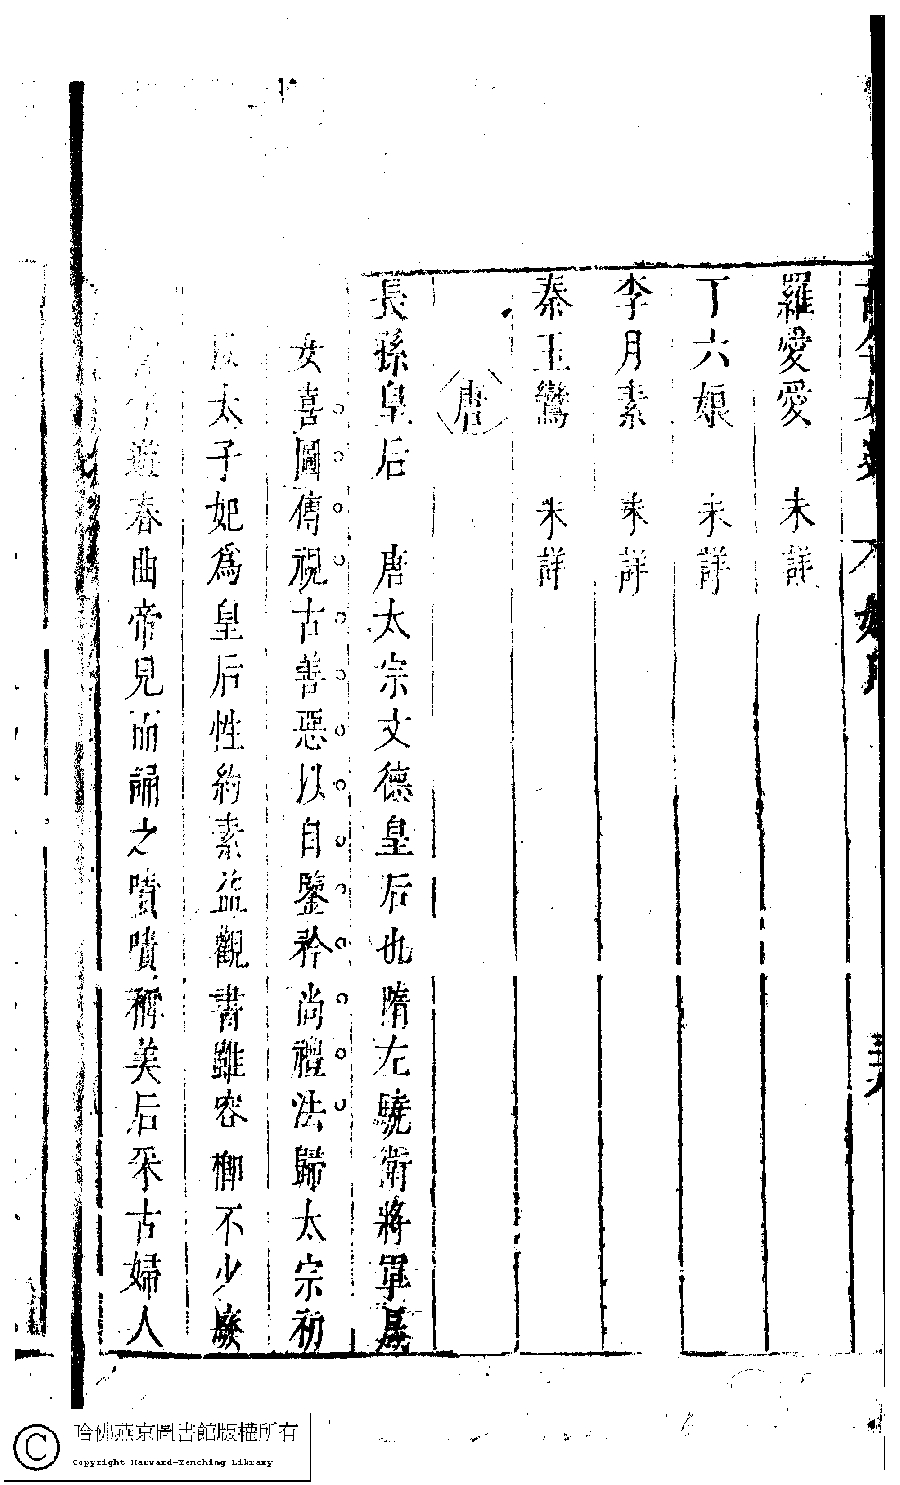 羅愛愛　未詳
丁六娘　未詳
李月素　未詳
秦玉鸞　未詳
唐
長孫皇后　唐太宗文德皇后也隋左驍衛將軍晟
女喜圖傳視古善惡以自鑒矜尚禮法歸太宗初
太子妃為皇后性約素益觀書雖容櫛不少廢
遊春曲帝見而誦之嘖嘖稱美后采古婦人
哈佛燕京圖書館版權所有
Copyright Harvard-Yenching Library